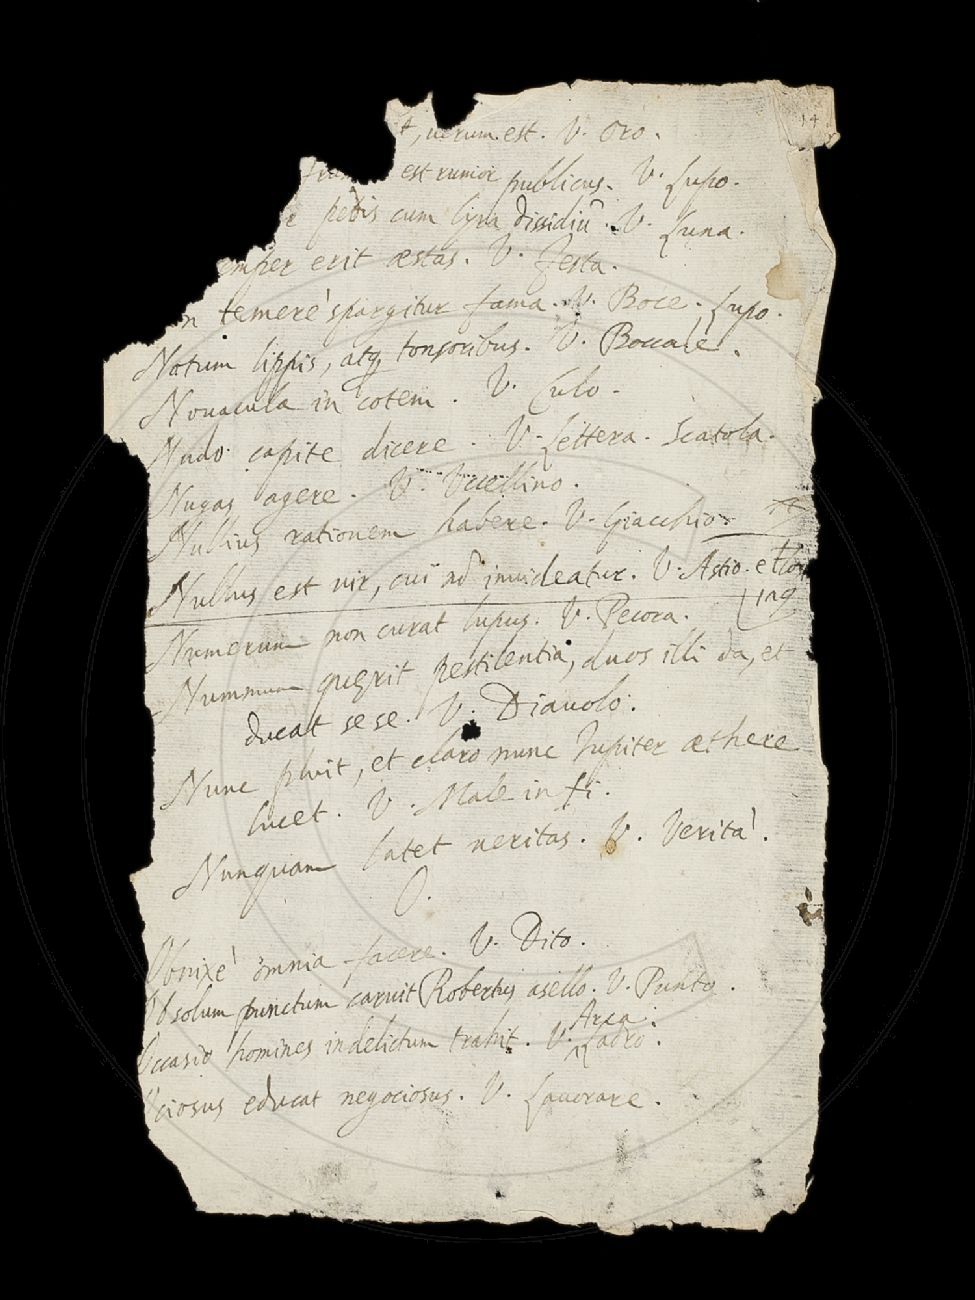 14
t, uerum est. V. Oro.
est rumor publicus. V. Lupo.
pedis cum lyra dissidiũ. V. Luna.
emper erit æstas. V. Festa.
n temerè spargitur fama. V. Boce. Lupo.
Notum lippis, atq tonsoribus. V. Boccale.
Nouacula in cotem. V. Culo.
Nudo capite dicere. V. Lettera. Scatola.
Nugas agere. V. Vccellino.
Nullius rationem habere. V. Giacchio.
Nullus est uir, cui nõ inuideatur. V. Astio. et
Numerum non curat lupus. V. Pecora.
Nummum quęrit pestilentia, duos illi da, et
ducat sese. V. Diauolo.
Nunc pluit, et claro nunc Iupiter æthere
lucet. V. Male in fi.
Nunquam latet ueritas. V. Verità.
O.
Obnixè omnia facere. V. Dito.
Ob solum punctum caruit Robertus asello. V. Punto.
Arca.
Occasio homines in delictum trahit. V. Ladro.
Ociosus educat negociosus. V. Lauorare.